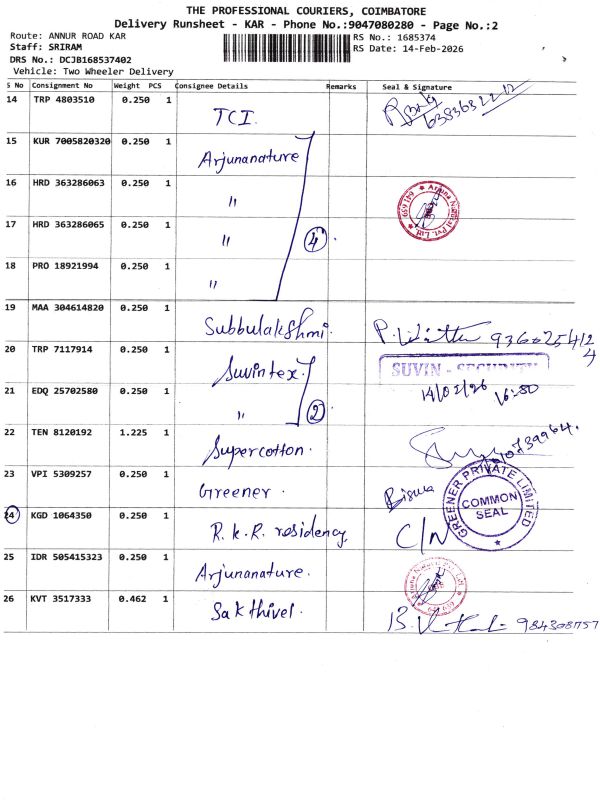 THE PROFESSIONAL COURIERS, COIMBATORE
Delivery Runsheet - KAR - Phone No.:9047080280 - Page No.:2
Route: ANNUR ROAD KAR
RS No.: 1685374
Staff: SRIRAM
RS Date: 14-Feb-2026
DRS No.: DCJB168537402
Vehicle: Two Wheeler Delivery
S No Consignment No Weight PCS Consignee Details Remarks Seal & Signature
14 TRP 4803510 0.250 1 TCI.
15 KUR 7005820320 0.250 1 Arjunanature
16 HRD 363286063 0.250 1 "
17 HRD 363286065 0.250 1 " 4
18 PRO 18921994 0.250 1 "
19 MAA 304614820 0.250 1 Subbulakshmi.
20 TRP 7117914 0.250 1 Suvintex
SUVIN - SECURITY
14/02/26
21 EDQ 25702580 0.250 1 " 2
22 TEN 8120192 1.225 1 Supercotton.
23 VPI 5309257 0.250 1 Greener. Biswa
GREENER PRIVATE LIMITED
COMMON SEAL
24 KGD 1064350 0.250 1 R.K.R. residency C/N
25 IDR 505415323 0.250 1 Arjunanature.
26 KVT 3517333 0.462 1 Sakthivel.